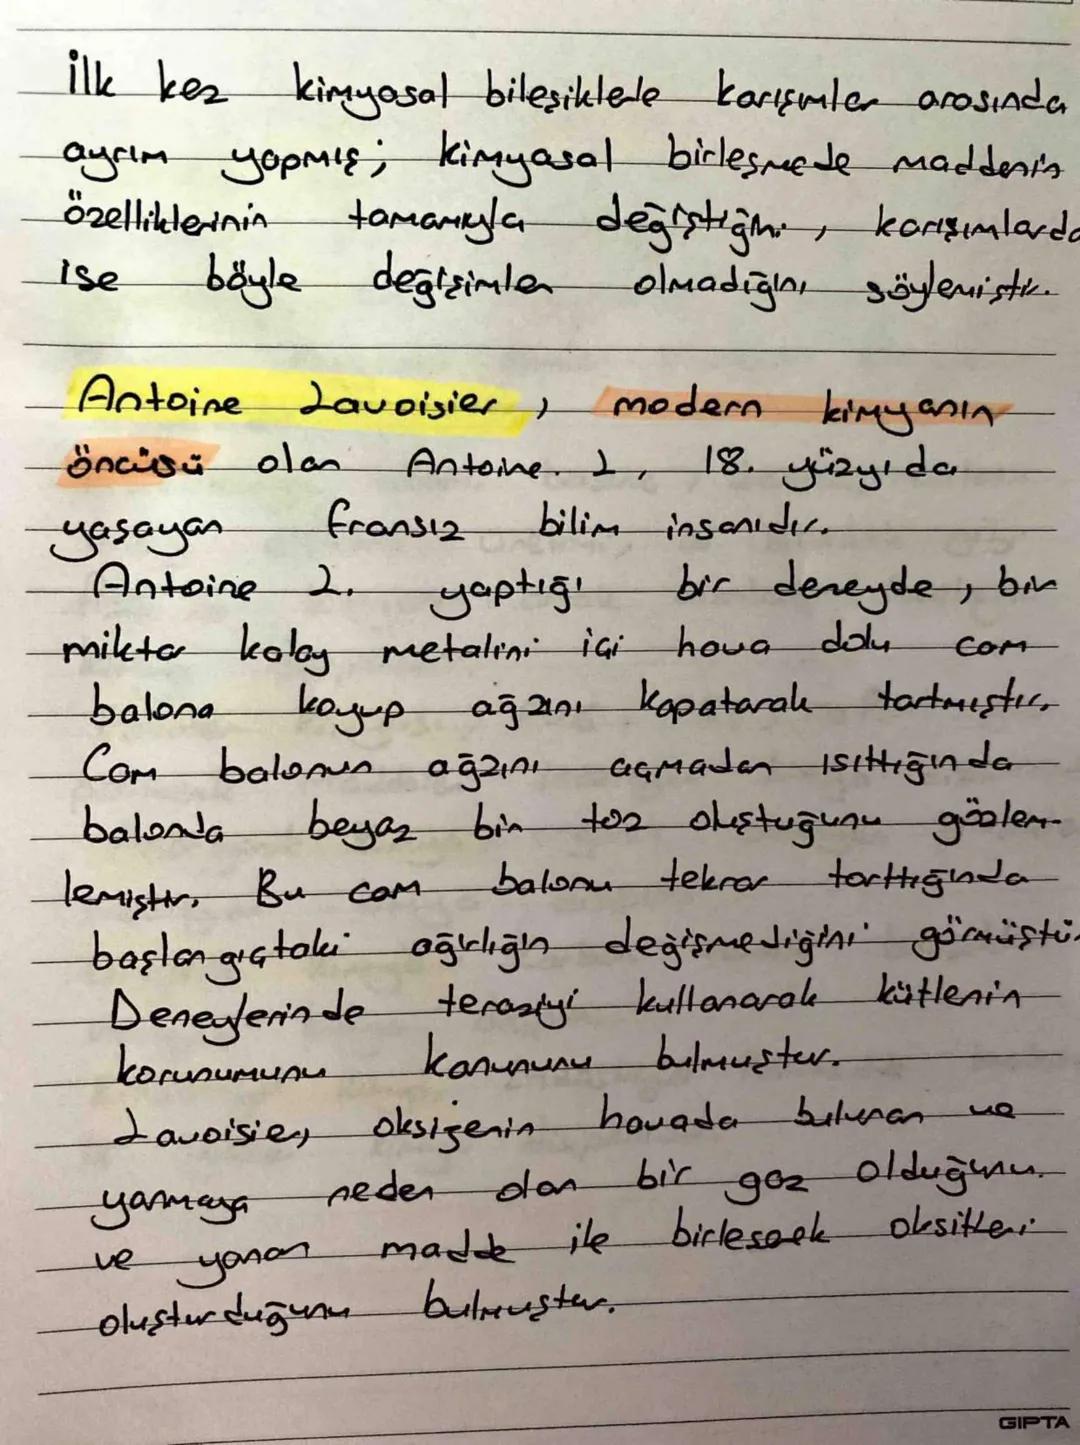 ilk kez kimyasal bileşiklele karışımlar arasında
ayrım yapmış; kimyasal birleşmede maddenin
özelliklerinin tamamıyla değiştiğini, karışımlarda
ise böyle değişimler olmadığını söylemiştir.
Antoine Lavoisier, modern kimyanın
öncüsü olan Antoine. L, 18. yüzyıda
yaşayan fransız bilim insanıdır.
Antoine L. yaptığı bir deneyde, bir
miktar kalay metalini içi hava dolu cam
balona koyup ağzını kapatarak tartmıştır.
Cam balonun ağzını açmadan ısıttığında
balonda beyaz bir toz oluştuğunu gözlem-
lemiştir. Bu cam balonu tekrar tarttığında
başlangıçtaki ağırlığın değişmediğini görmüştür
Deneylerinde teraziyi kullanarak kütlenin
korunumunu kanununu bulmuştur.
Lavoisier, oksijenin havada bulunan ve
yanmaya neden olan bir gaz olduğunu.
ve yanan madde ile birleşerek oksitleri
oluşturduğunu bulmuştur.
GIPTA